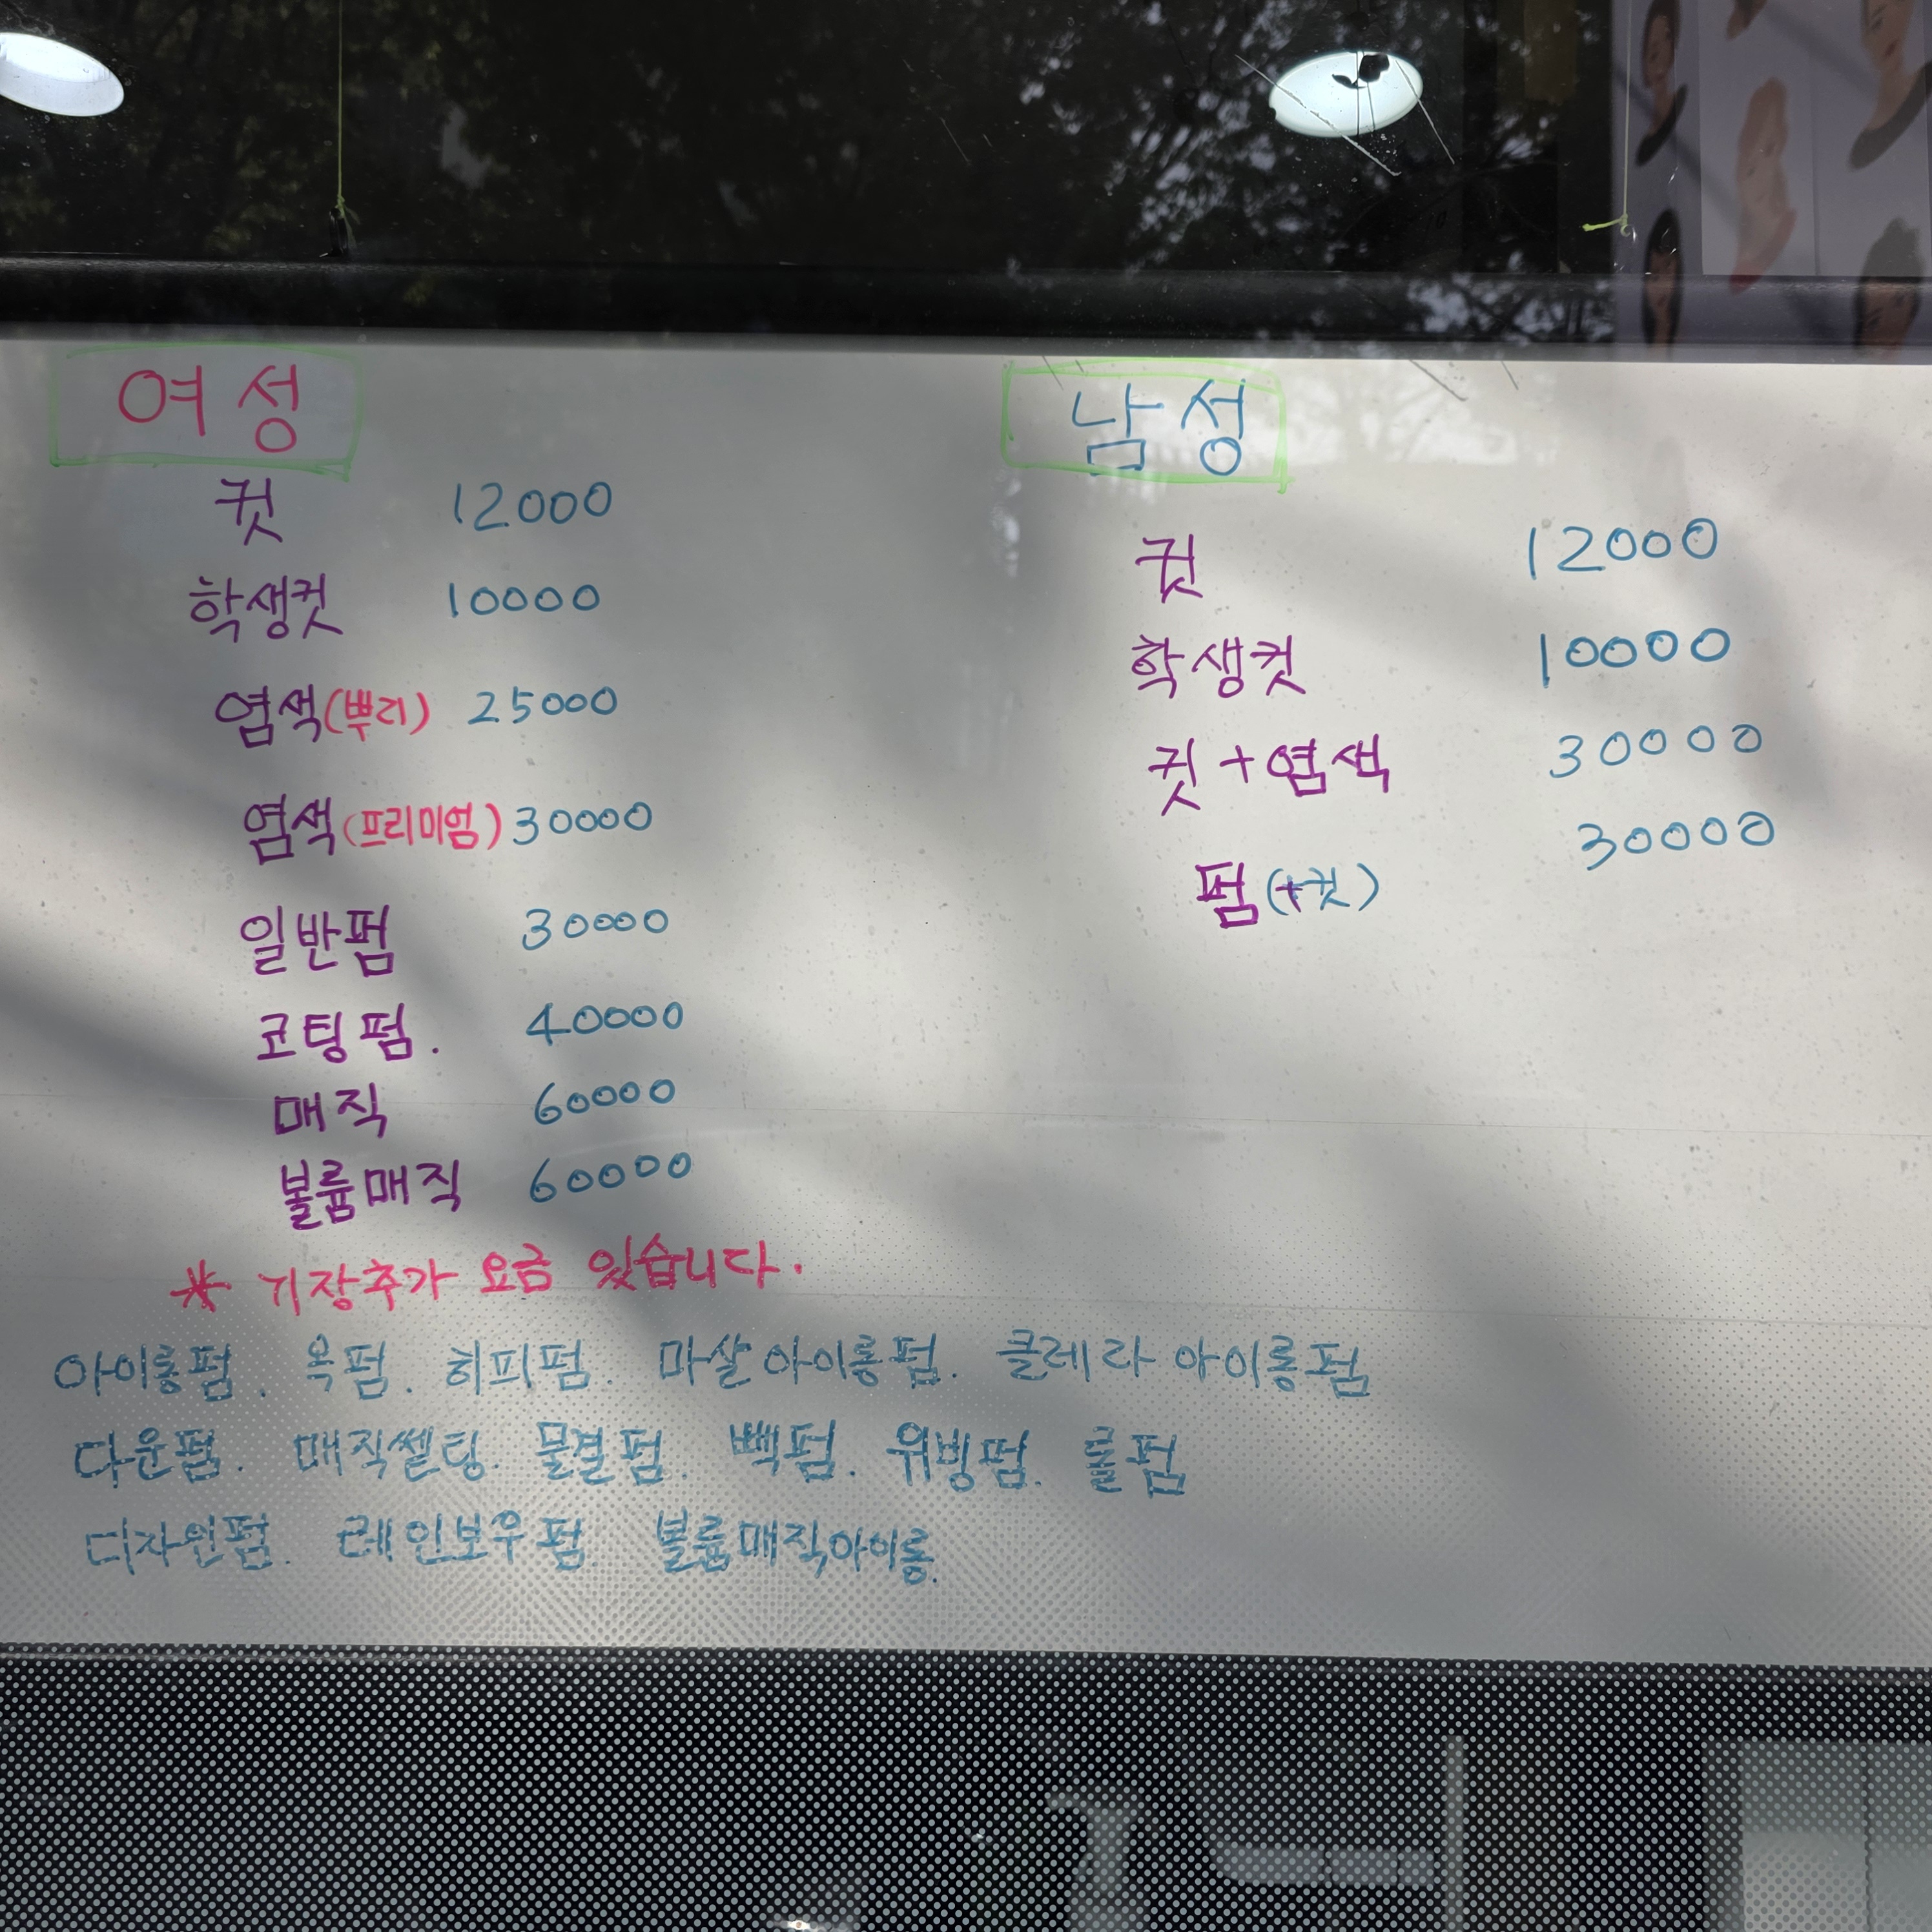 여성
컷 12000
학생컷 10000
염색(뿌리) 25000
염색(프리미엄) 30000
일반펌 30000
코팅펌. 40000
매직 60000
볼륨매직 60000
* 기장추가 요금 있습니다.
남성
컷 12000
학생컷 10000
컷+염색 30000
펌(+컷) 30000
아이롱펌. 옥펌. 히피펌. 마샬아이롱펌. 클레라 아이롱펌
다운펌. 매직쎌팅. 물결펌. 빽펌. 위빙펌. 롤펌
디자인펌. 레인보우펌. 볼륨매직아이롱.